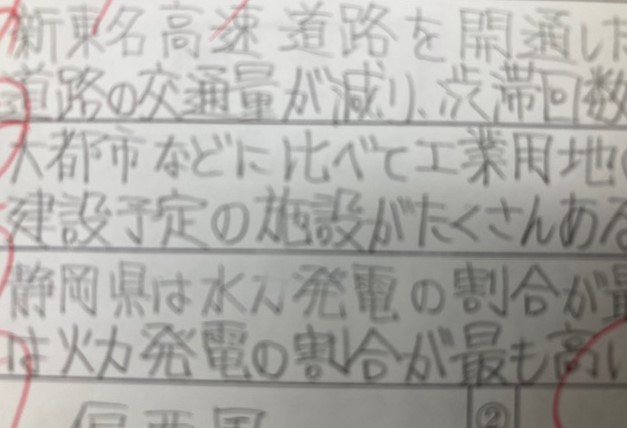 新東名高速道路を開通した
道路の交通量が減り、渋滞回数
大都市などに比べて工業用地の
建設予定の施設がたくさんある
静岡県は水力発電の割合が最
は火力発電の割合が最も高い
②